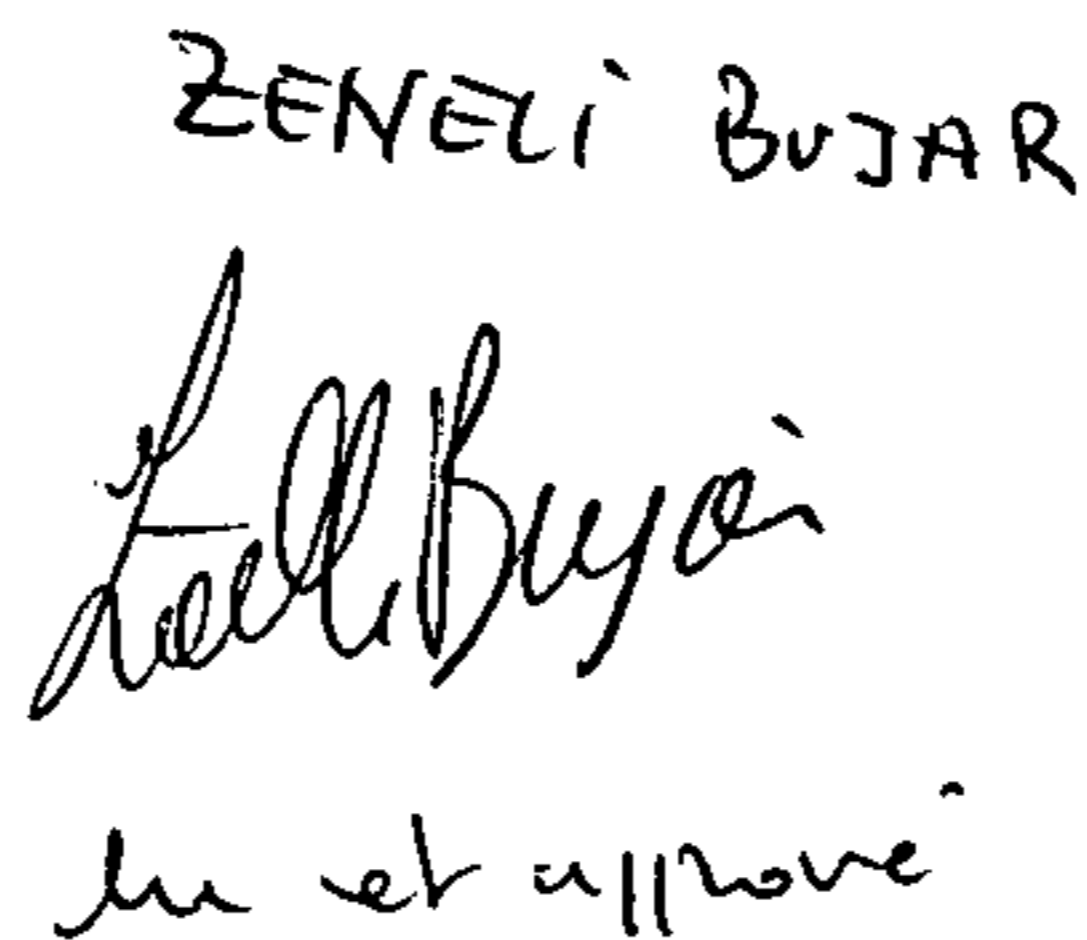 ZENELI BUJAR
Zeneli Bujar
lu et approuvé